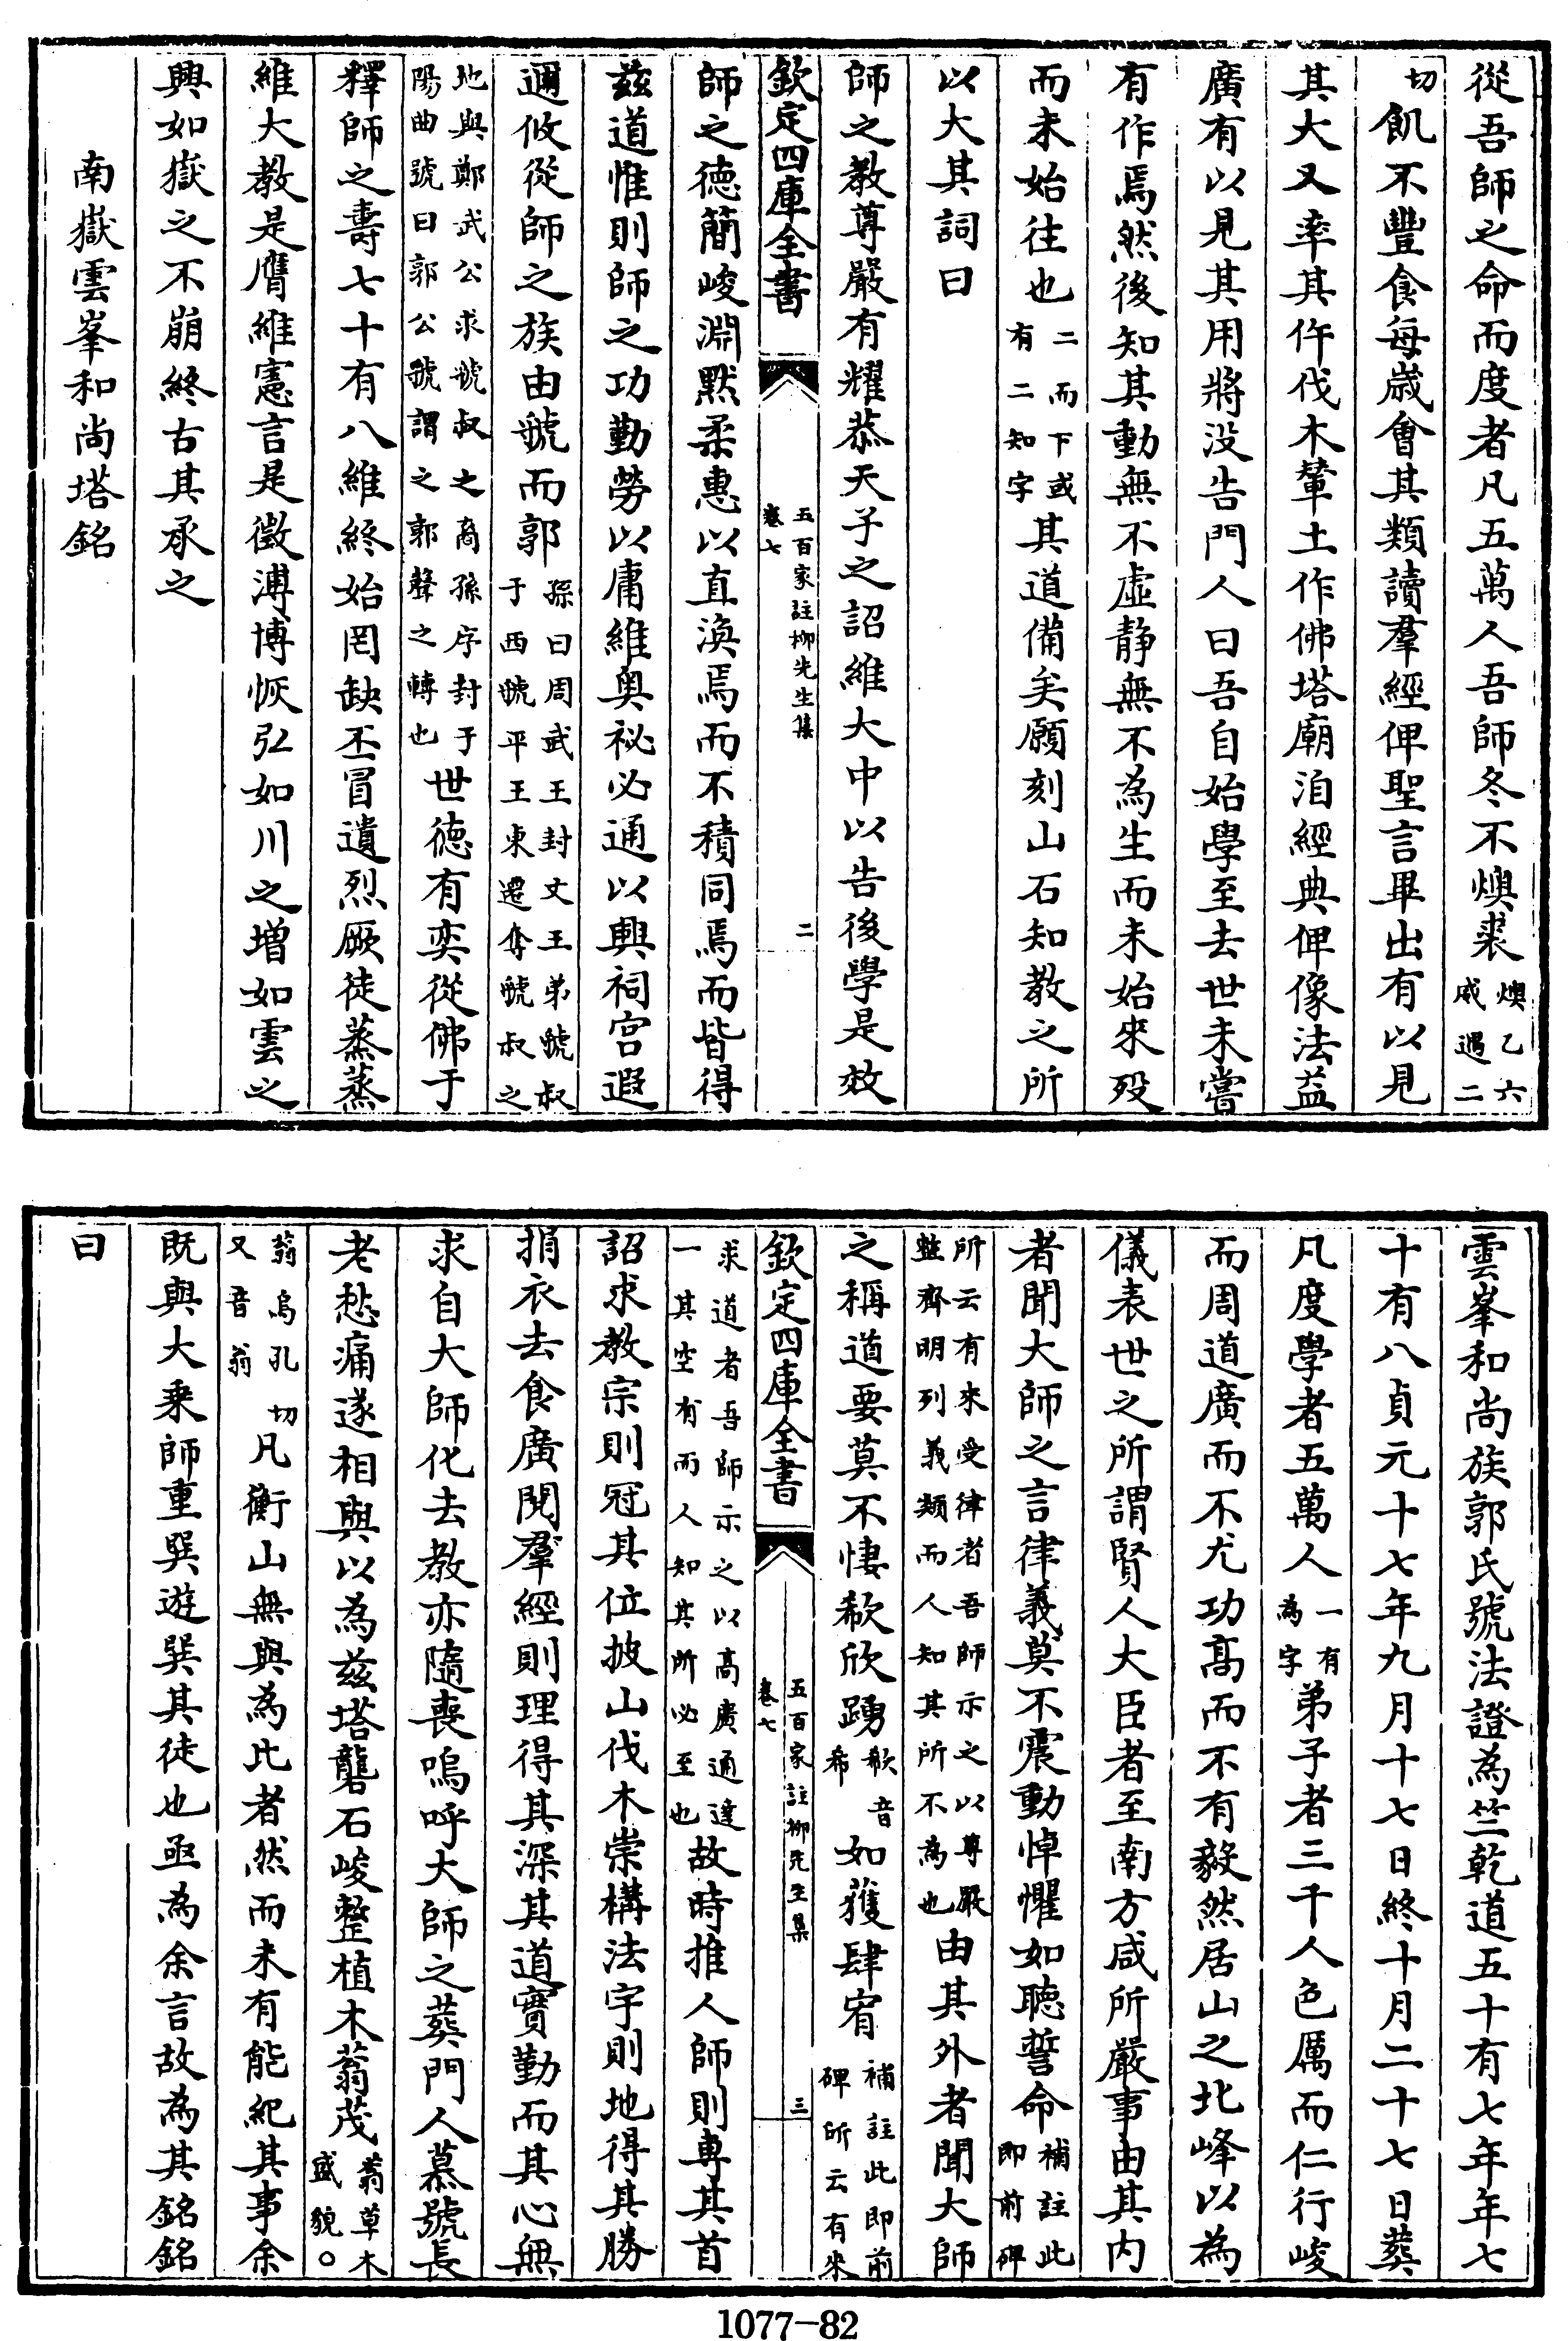 從吾師之命而度者凡五萬人吾師冬不燠裘燠乙六戚遇二
切飢不豐食每歲會其類讀羣經俾聖言畢出有以見
其大又率其伻伐木輦土作佛塔廟洎經典俾像法益
廣有以見其用將没告門人曰吾自始學至去世未嘗
有作焉然後知其動無不虛静無不為生而未始來殁
而未始往也二而下或有二知字其道備矣願刻山石知教之所
以大其詞曰
師之教尊嚴有耀恭天子之詔維大中以告後學是效
欽定四庫全書
五百家註柳先生集
卷七
二
師之德簡峻淵默柔惠以直渙焉而不積同焉而皆得
兹道惟則師之功勤勞以庸維奥祕必通以興祠宫遐
邇攸從師之族由虢而郭孫曰周武王封文王弟虢叔于西虢平王東遷奪虢叔之
地與鄭武公求虢叔之裔孫序封于陽曲號曰郭公虢謂之郭聲之轉也世德有奕從佛于
釋師之壽七十有八維終始罔缺丕冒遺烈厥徒蒸蒸
維大教是膺維憲言是徵溥博恢弘如川之增如雲之
興如嶽之不崩終古其承之
南嶽雲峯和尚塔銘
雲峯和尚族郭氏號法證為竺乾道五十有七年年七
十有八貞元十七年九月十七日終十月二十七日葬
凡度學者五萬人一有為字弟子者三千人色厲而仁行峻
而周道廣而不尤功高而不有毅然居山之北峰以為
儀表世之所謂賢人大臣者至南方咸所嚴事由其内
者聞大師之言律義莫不震動悼懼如聴誓命補註此即前碑
所云有來受律者吾師示之以尊嚴整齊明列義類而人知其所不為也由其外者聞大師
之稱道要莫不悽欷欣踴欷音希如獲肆宥補註此即前碑所云有來
欽定四庫全書
五百家註柳先生集
卷七
三
求道者吾師示之以高廣通達一其空有而人知其所必至也故時推人師則専其首
詔求教宗則冠其位披山伐木崇構法宇則地得其勝
捐衣去食廣閲羣經則理得其深其道實勤而其心無
求自大師化去教亦隨喪嗚呼大師之葬門人慕號長
老愁痛遂相與以為兹塔礱石峻整植木蓊茂蓊草木盛貌○
蓊烏孔切又音翁凡衡山無與為比者然而未有能紀其事余
既與大乘師重巽遊巽其徒也亟為余言故為其銘銘
曰
1077-82